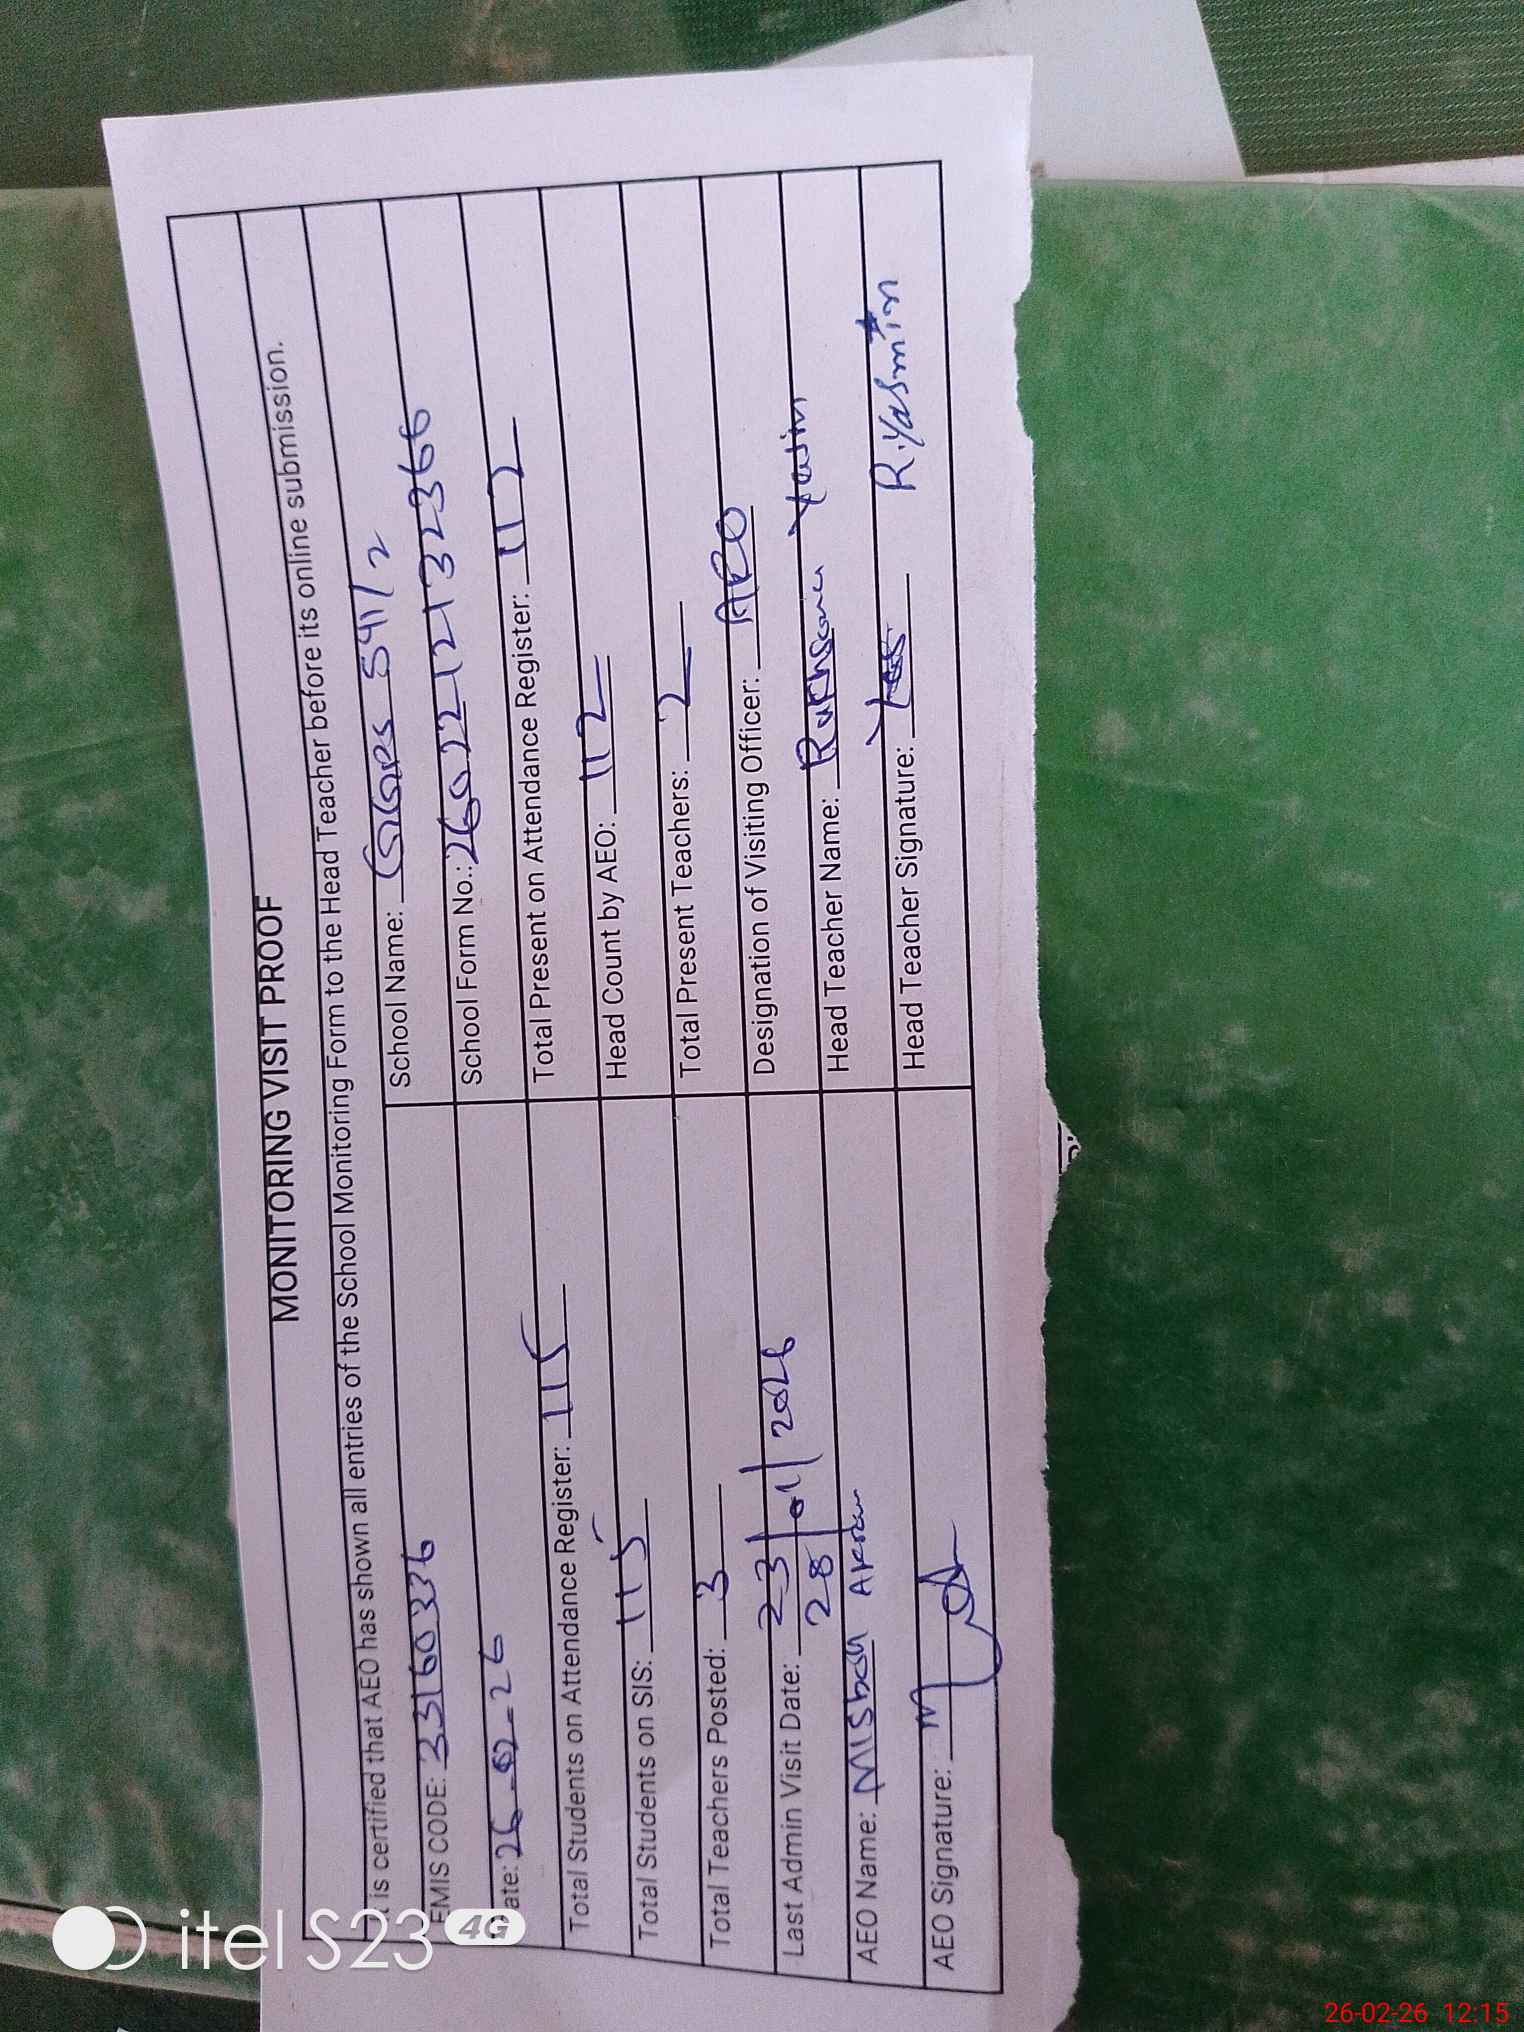 MONITORING VISIT PROOF
It is certified that AEO has shown all entries of the School Monitoring Form to the Head Teacher before its online submission.
EMIS CODE: 33160336
School Name: GGPS 541/2
Date: 26-02-26
School Form No.: 2602212132366
Total Students on Attendance Register: 115
Total Present on Attendance Register: 112
Total Students on SIS: 115
Head Count by AEO: 112
Total Teachers Posted: 3
Total Present Teachers: 2
Last Admin Visit Date: 23/01/2026
28
Designation of Visiting Officer: AEO
AEO Name: Misbah Akram
Head Teacher Name: Rukhsana
AEO Signature:
Head Teacher Signature: R.Yasmin
itel S23 4G
26-02-26 12:15